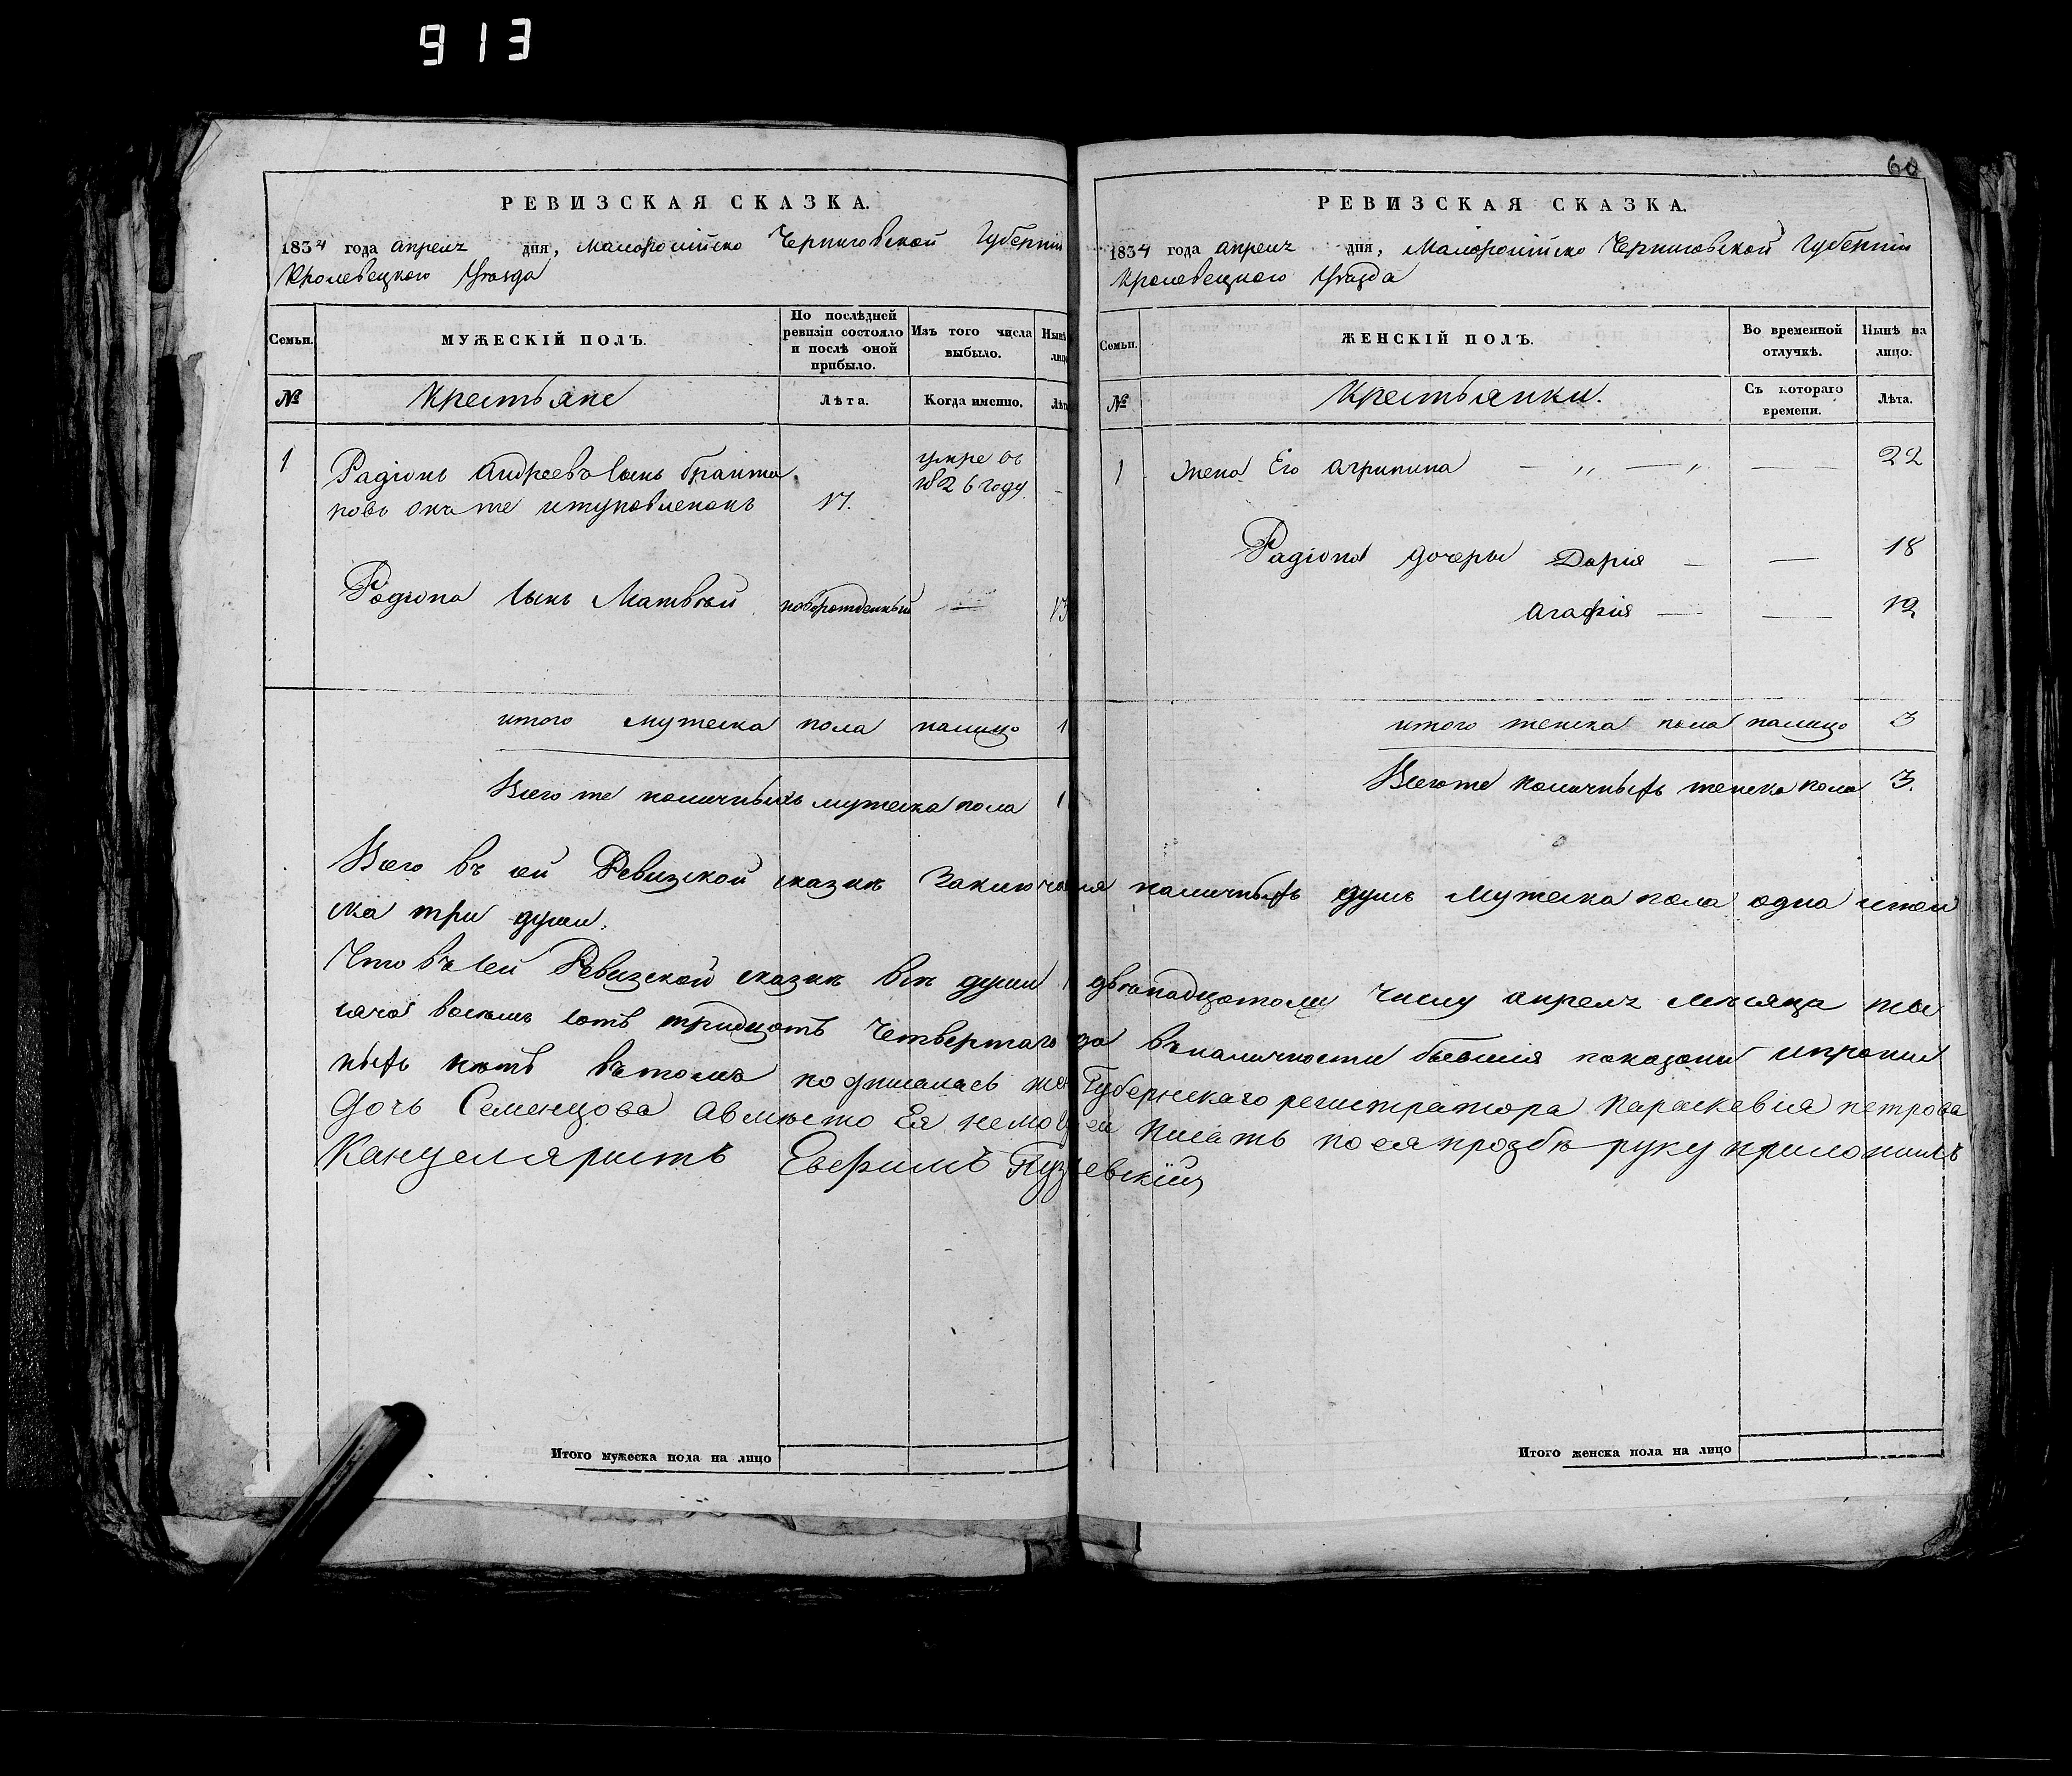 913
60
РЕВИЗСКАЯ СКАЗКА.
1834 года апреля дня, Малоросійско Черниговской Губерніи
Кролевецкого Уезда
Семьи.
МУЖЕСКІЙ ПОЛЪ.
По послѣдней ревизіи состояло и послѣ оной прибыло.
Изъ того числа выбыло.
Нынѣ
лицо
№
Крестьяне
Лѣта.
Когда именно.
Лѣта
1 Радіонъ Андреевъ сынъ умре въ
новъ онъ же 17. 1826 году
Радіона сынъ Матвѣй новорожденный 13
итого мужеска пола налицо 1
Всего же наличныхъ мужеска пола 1
РЕВИЗСКАЯ СКАЗКА.
1834 года апреля дня, Малоросійско Черниговской Губерніи
Кролевецкого Уезда
Семьи.
ЖЕНСКІЙ ПОЛЪ.
Во временной отлучкѣ.
Нынѣ на лицо.
№
Крестьянки.
Съ котораго времени.
Лѣта.
1 Жена Его Агрипина 22
Радіона дочеры Дарія 18
Агафія 12
итого женска пола налицо 3
Всего же наличныхъ женска пола 3.
Всего въ сей Ревизской сказкѣ Заключается наличныхъ душъ Мужеска пола одна и жен
ска три души.
Что въ сей Ревизской сказкѣ всѣ души к двенадцатому числу апреля месяца ты
сяча восемъ сотъ тридцатъ четвертаго года въ наличности бывшія показаны и
ныхъ нетъ въ томъ подписалась жена Губернскаго регистратора Параскевія петрова
Дочь Семенцова а вместо Ея немогущей писать по ея прозбѣ руку приложилъ
Канцеляристъ Евфимъ
Итого мужеска пола на лицо
Итого женска пола на лицо